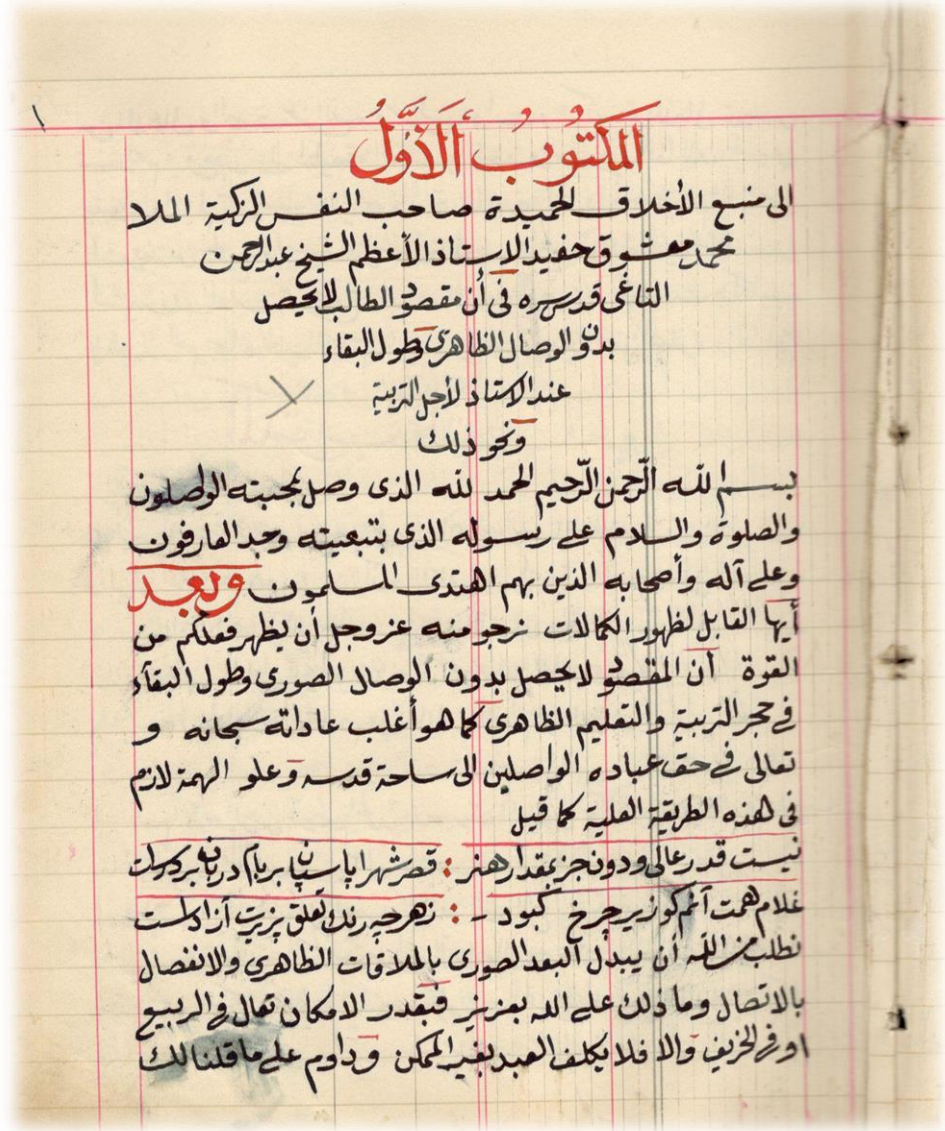 ١
المَكتُوبُ الَأوَّلُ
الى منبع الأخلاق الحميدة صاحب النفس الزكية الملا
محمد معشوق حفيد الاستاذ الأعظم الشيخ عبد الرحمن
التاغى قدس سره فى أن مقصود الطالب لا يحصل
بدون الوصال الظاهرى وطول البقاء
عند الاستاذ لأجل التربية
ونحو ذلك
بسم الله الرّحمن الرّحيم الحمد لله الذى وصل بمحبته الواصلون
والصلوة والسلام على رسوله الذى بتبعيته وجد العارفون
وعلى آله وأصحابه الذين بهم اهتدى المسلمون وبعد
أيها القابل لظهور الكمالات نرجو منه عزوجل أن يظهر فعلكم من
القوة أن المقصود لا يحصل بدون الوصال الصورى وطول البقاء
فى حجر التربية والتعليم الظاهرى كما هو أغلب عاداته سبحانه و
تعالى فى حق عباده الواصلين الى ساحة قدسه وعلو الهمة لازم
فى هذه الطريقة العلية كما قيل
نيست قدر عالى ودون جز بمقدار هنر : قصر شهرا پاسپان بر بام دربان بر درست
غلام همت آنم كو زير چرخ كبود - : زهرچه رنك تعلق پزيرت آزادست
نطلب من الله أن يبدل البعد الصورى بالملاقات الظاهرى والانفصال
بالاتصال وما ذلك على الله بعزيز فبقدر الامكان تعال فى الربيع
او فى الخريف والا فلا يكلف العبد بغير الممكن وداوم على ما قلنا لك